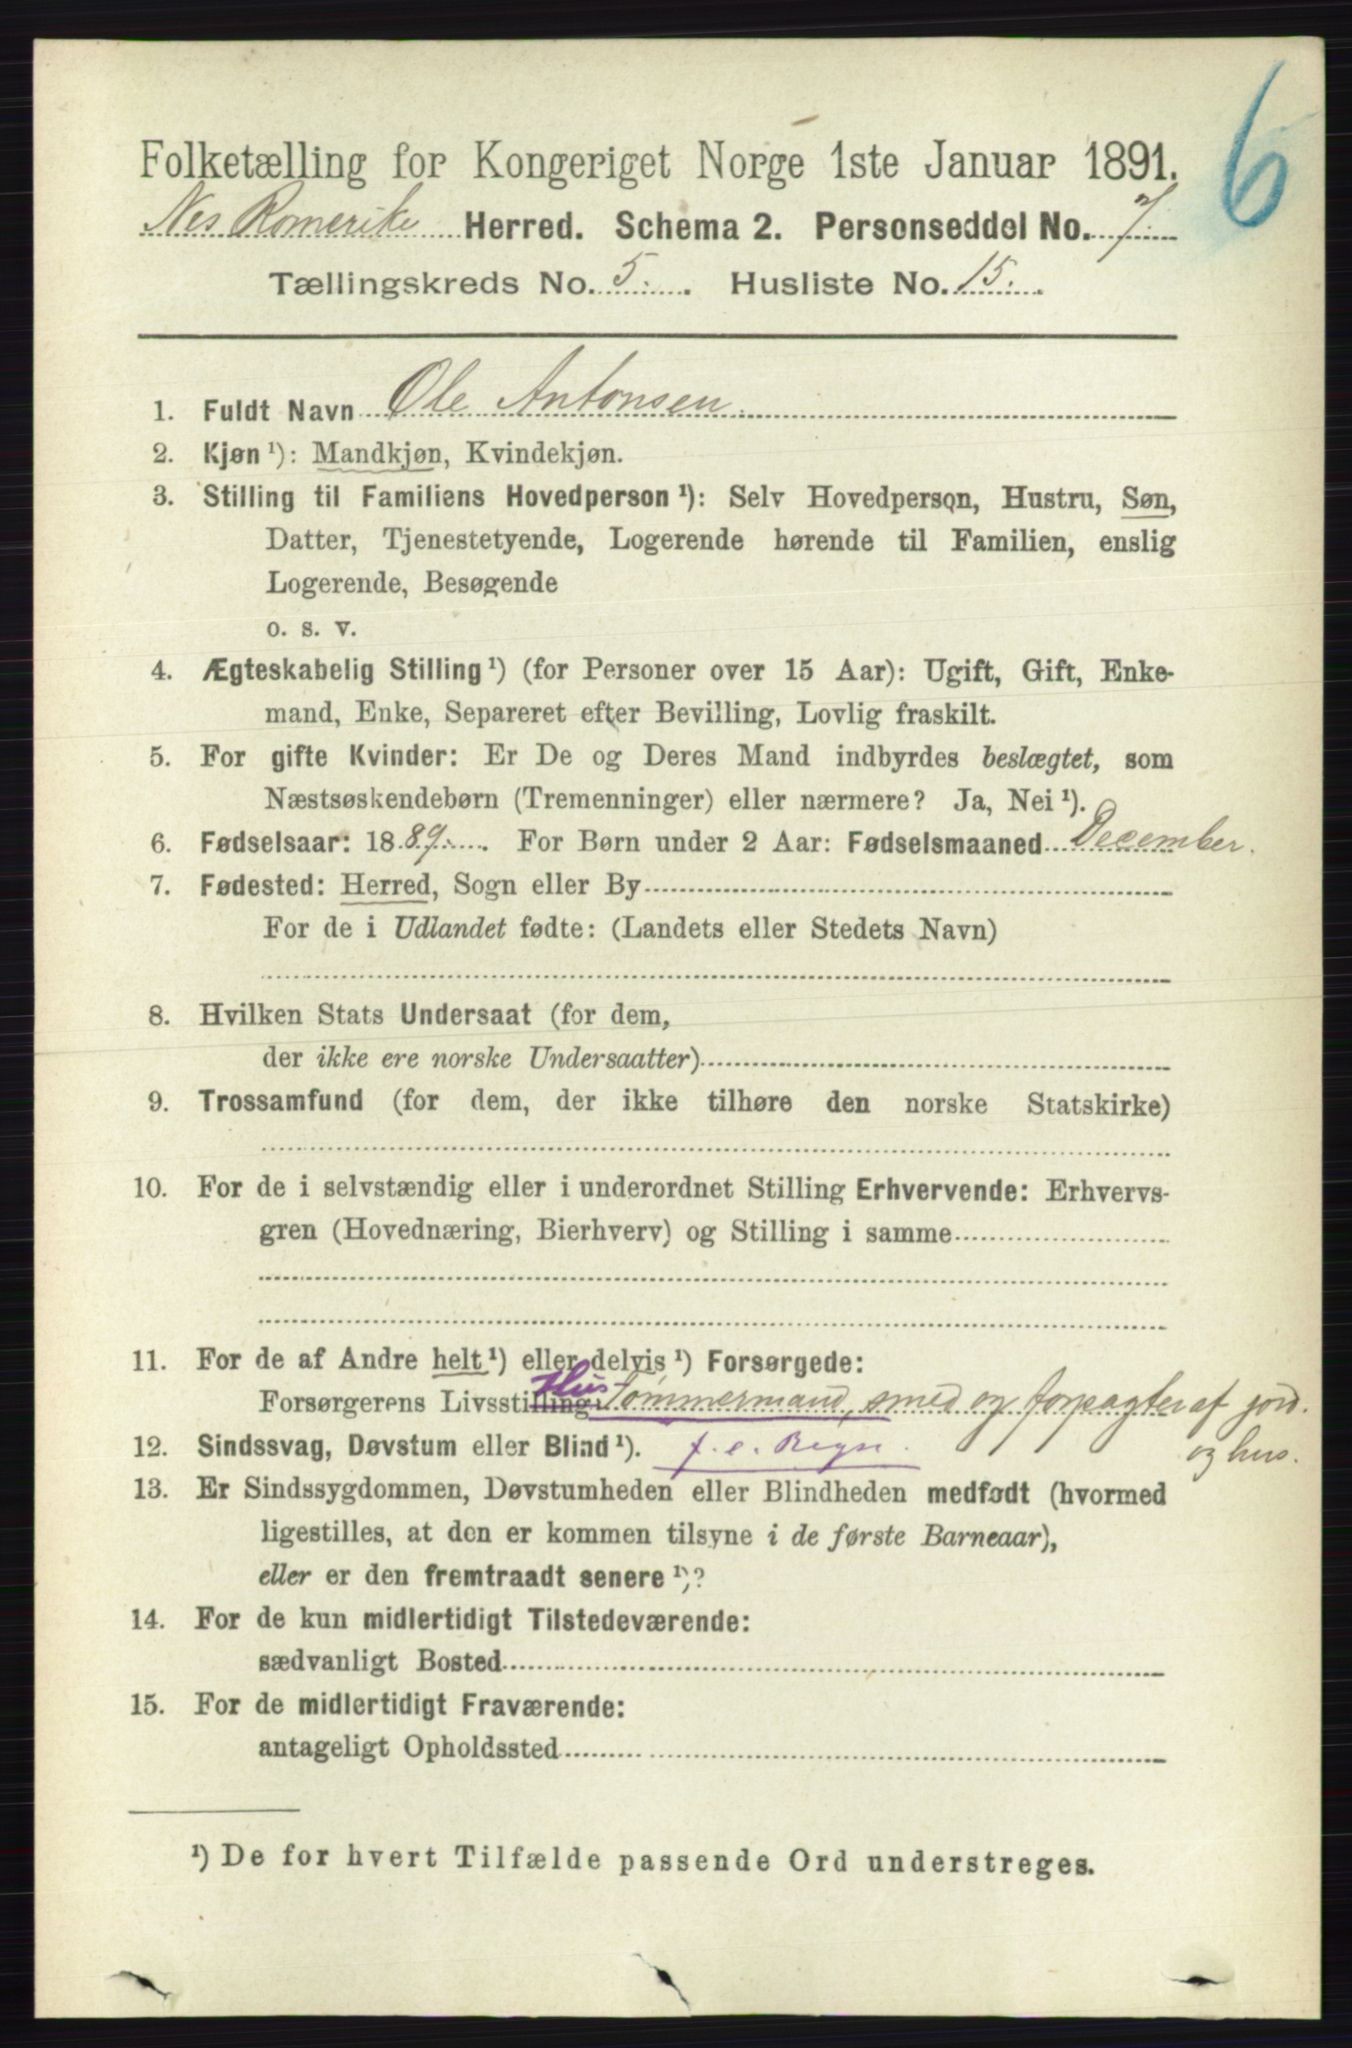 6
Folketælling for Kongeriget Norge 1ste Januar 1891.
Nes Romerike Herred. Schema 2. Personseddel No. 7.
Tællingskreds No. 5. Husliste No. 15.
1. Fuldt Navn Ole Antonsen
2. Kjøn ¹): Mandkjøn, Kvindekjøn.
3. Stilling til Familiens Hovedperson ¹): Selv Hovedperson, Hustru, Søn,
Datter, Tjenestetyende, Logerende hørende til Familien, enslig
Logerende, Besøgende
o. s. v.
4. Ægteskabelig Stilling ¹) (for Personer over 15 Aar): Ugift, Gift, Enke-
mand, Enke, Separeret efter Bevilling, Lovlig fraskilt.
5. For gifte Kvinder: Er De og Deres Mand indbyrdes beslægtet, som
Næstsøskendebørn (Tremenninger) eller nærmere? Ja, Nei ¹).
6. Fødselsaar: 1889. For Børn under 2 Aar: Fødselsmaaned December.
7. Fødested: Herred, Sogn eller By
For de i Udlandet fødte: (Landets eller Stedets Navn)
8. Hvilken Stats Undersaat (for dem,
der ikke ere norske Undersaatter)
9. Trossamfund (for dem, der ikke tilhøre den norske Statskirke)
10. For de i selvstændig eller i underordnet Stilling Erhvervende: Erhvervs-
gren (Hovednæring, Bierhverv) og Stilling i samme
11. For de af Andre helt ¹) eller delvis ¹) Forsørgede:
Forsørgerens Livsstilling: Hus Tømmermand, smed og forpagter af jord.
og hus.
12. Sindssvag, Døvstum eller Blind ¹). f. e. Regn.
13. Er Sindssygdommen, Døvstumheden eller Blindheden medfødt (hvormed
ligestilles, at den er kommen tilsyne i de første Barneaar),
eller er den fremtraadt senere ¹)?
14. For de kun midlertidigt Tilstedeværende:
sædvanligt Bosted
15. For de midlertidigt Fraværende:
antageligt Opholdssted
¹) De for hvert Tilfælde passende Ord understreges.